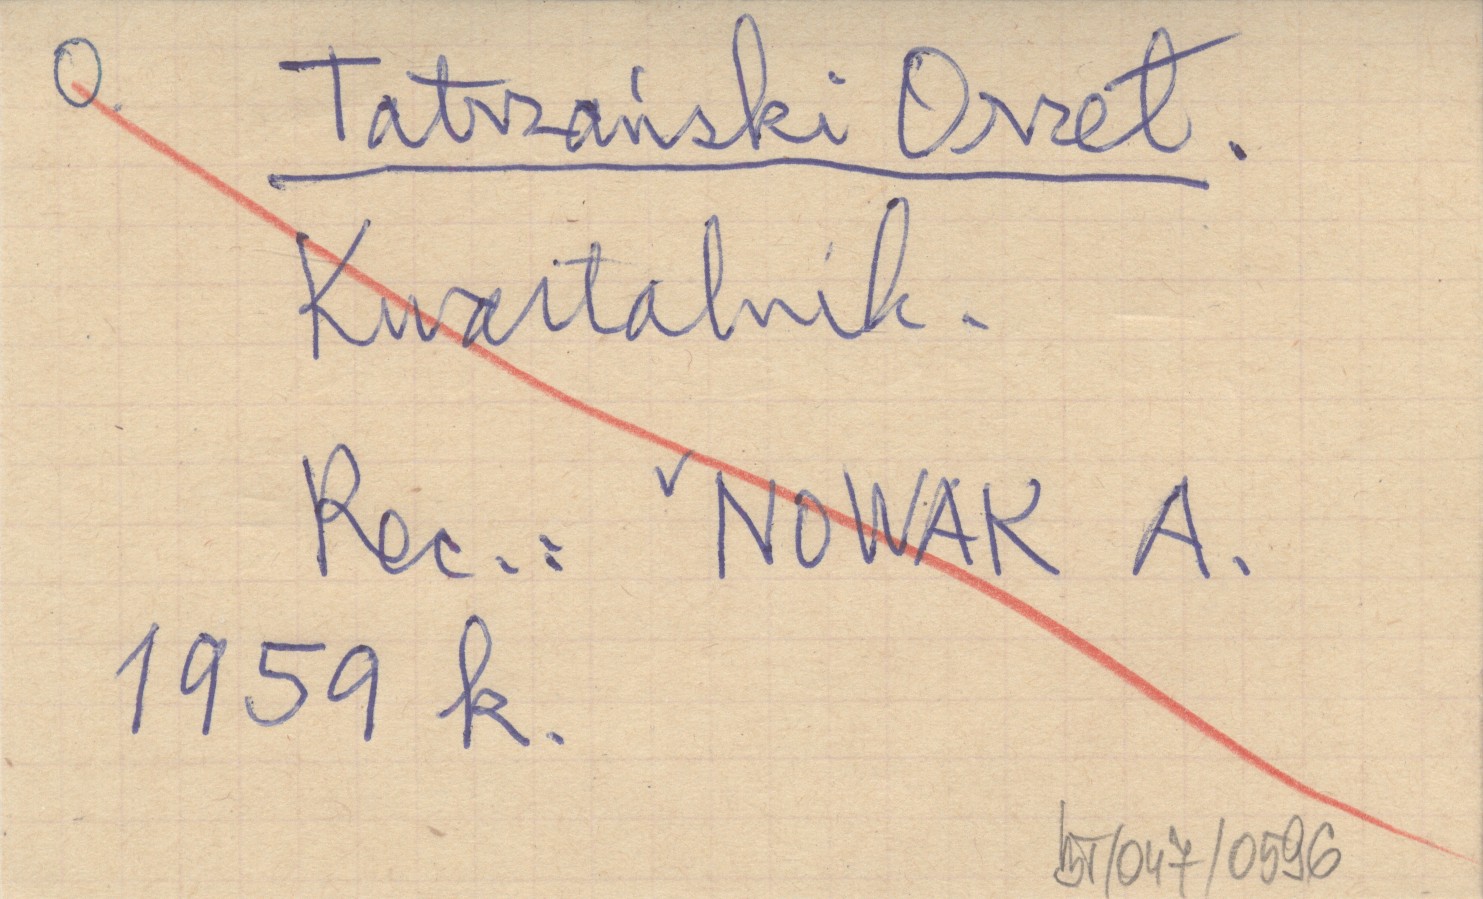 O. Tatrzański Orzeł.
Kwartalnik.
Rec.: ✓ NOWAK A.
1959 k.
BT/047/0596